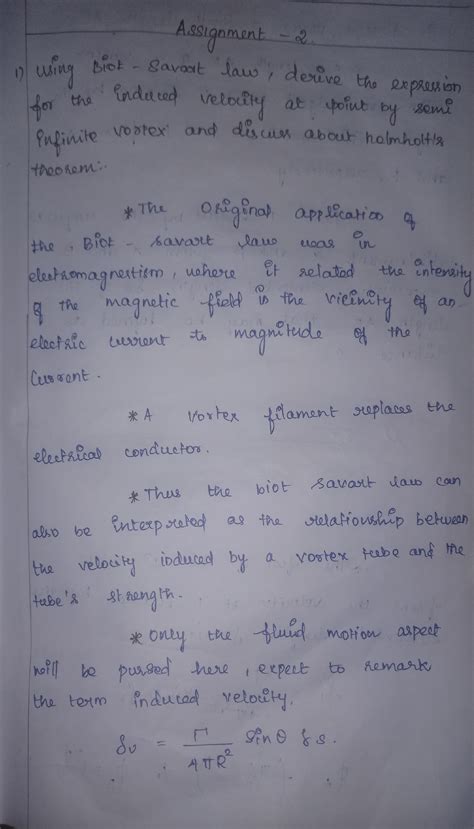 Assignment - 2
1) Using Biot - Savart law, derive the expression
for the induced velocity at point by semi
Infinite vortex and discuss about holmholt's
theorem:-
* The Original application of
the Biot - savart law was in
electromagnestism, where it related the intensity
of the magnetic field in the vicinity of an
electric current to magnitude of the
Current.
* A vortex filament replaces the
electrical conductor.
* Thus the biot savart law can
also be interpreted as the relationship between
the velocity induced by a vortex tube and the
tube's strength.
* Only the fluid motion aspect
will be pursed here, expect to remark
the term induced velocity.
δv = Γ / 4πR² sin θ δs.